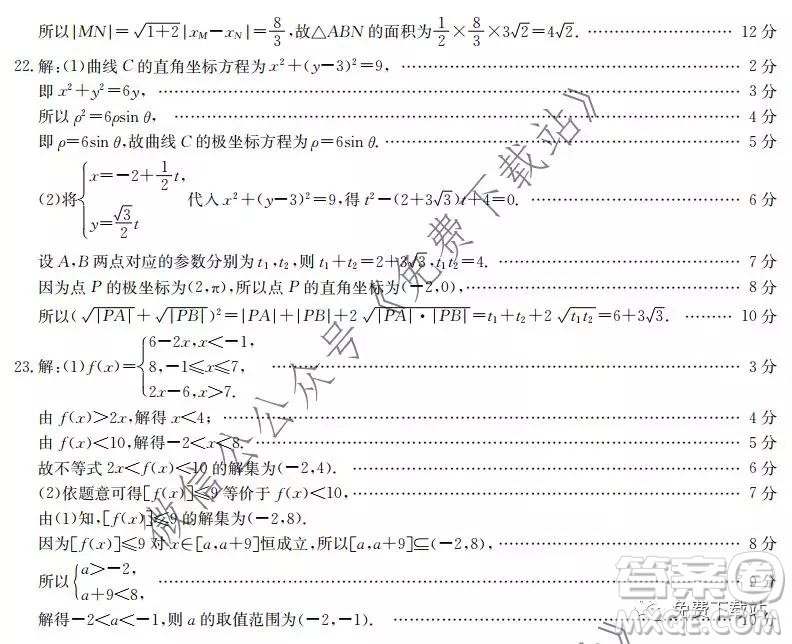 所以|MN|=√(1+2)|x_M-x_N|=8/3,故△ABN的面积为1/2×8/3×3√2=4√2. …… 12分
22.解:(1)曲线C的直角坐标方程为x²+(y-3)²=9, …… 2分
即x²+y²=6y, …… 3分
所以ρ²=6ρsin θ, …… 4分
即ρ=6sin θ,故曲线C的极坐标方程为ρ=6sin θ. …… 5分
(2)将{x=-2+1/2 t, y=√3/2 t 代入x²+(y-3)²=9,得t²-(2+3√3)t+4=0. …… 6分
设A,B两点对应的参数分别为t₁,t₂,则t₁+t₂=2+3√3,t₁t₂=4. …… 7分
因为点P的极坐标为(2,π),所以点P的直角坐标为(-2,0), …… 8分
所以(√|PA|+√|PB|)²=|PA|+|PB|+2√(|PA|·|PB|)=t₁+t₂+2√(t₁t₂)=6+3√3. …… 10分
23.解:(1)f(x)={6-2x,x<-1, 8,-1≤x≤7, 2x-6,x>7. …… 3分
由f(x)>2x,解得x<4; …… 4分
由f(x)<10,解得-2<x<8. …… 5分
故不等式2x<f(x)<10的解集为(-2,4). …… 6分
(2)依题意可得[f(x)]≤9等价于f(x)<10, …… 7分
由(1)知,[f(x)]≤9的解集为(-2,8).
因为[f(x)]≤9对x∈[a,a+9]恒成立,所以[a,a+9]⊆(-2,8), …… 8分
所以{a>-2, a+9<8, …… 9分
解得-2<a<-1,则a的取值范围为(-2,-1). …… 10分
微信公众号《免费下载站》
答案圈
MXQE.COM
免费下载站